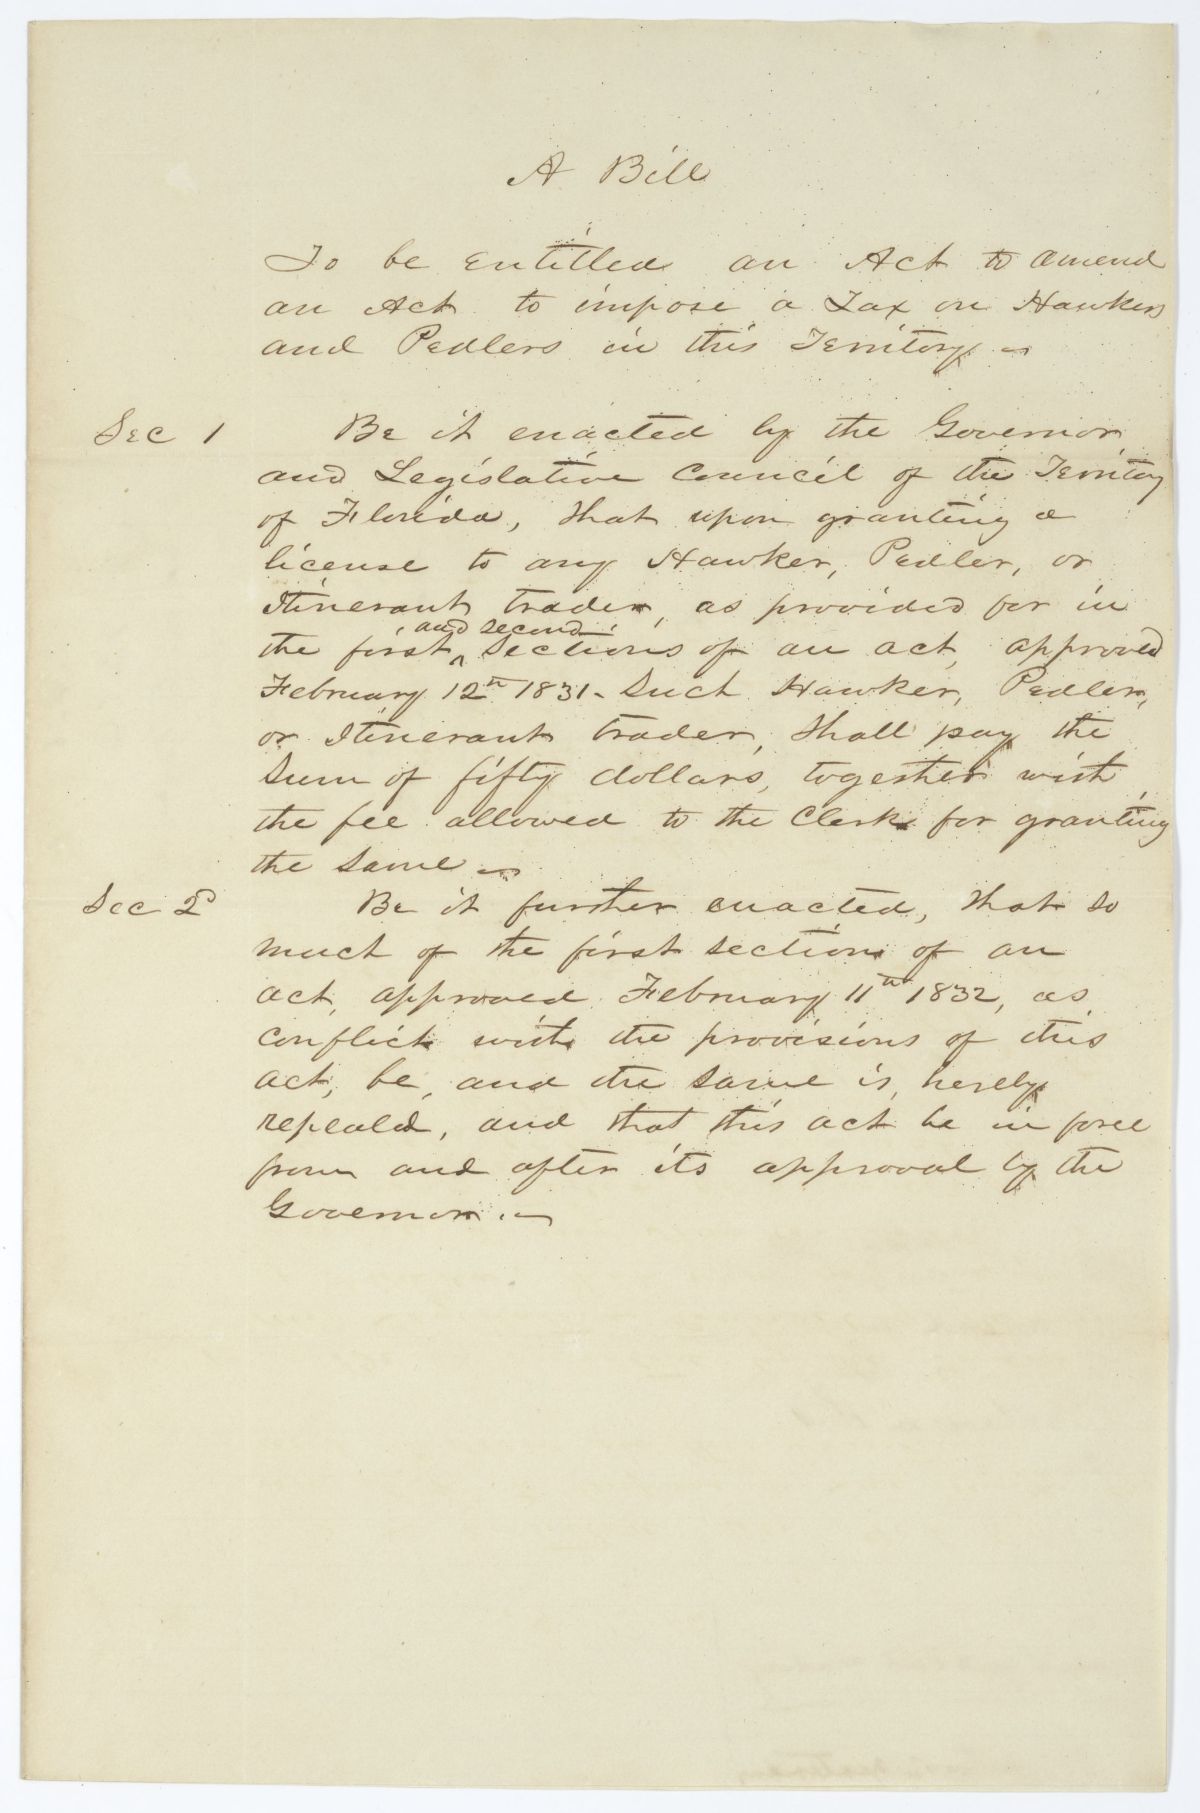 A Bill
To be entitled an Act to amend
an Act to impose a Tax on Hawkers
and Pedlers in this Territory
Sec 1 Be it enacted by the Governor
and Legislative Council of the Territory
of Florida, that upon granting a
license to any Hawker, Pedler, or
Itinerant trader, as provided for in
and second
the first ^ sections of an act, approved
February 12th 1831 - Such Hawker, Pedler,
or Itinerant trader, shall pay the
Sum of fifty dollars, together with
the fee allowed to the Clerk for granting
the same
Sec 2d Be it further enacted, that so
much of the first section of an
act, approved February 11th 1832, as
conflict with the provisions of this
act, be, and the same is, hereby
repeald, and that this act be in force
from and after its approval by the
Governor.